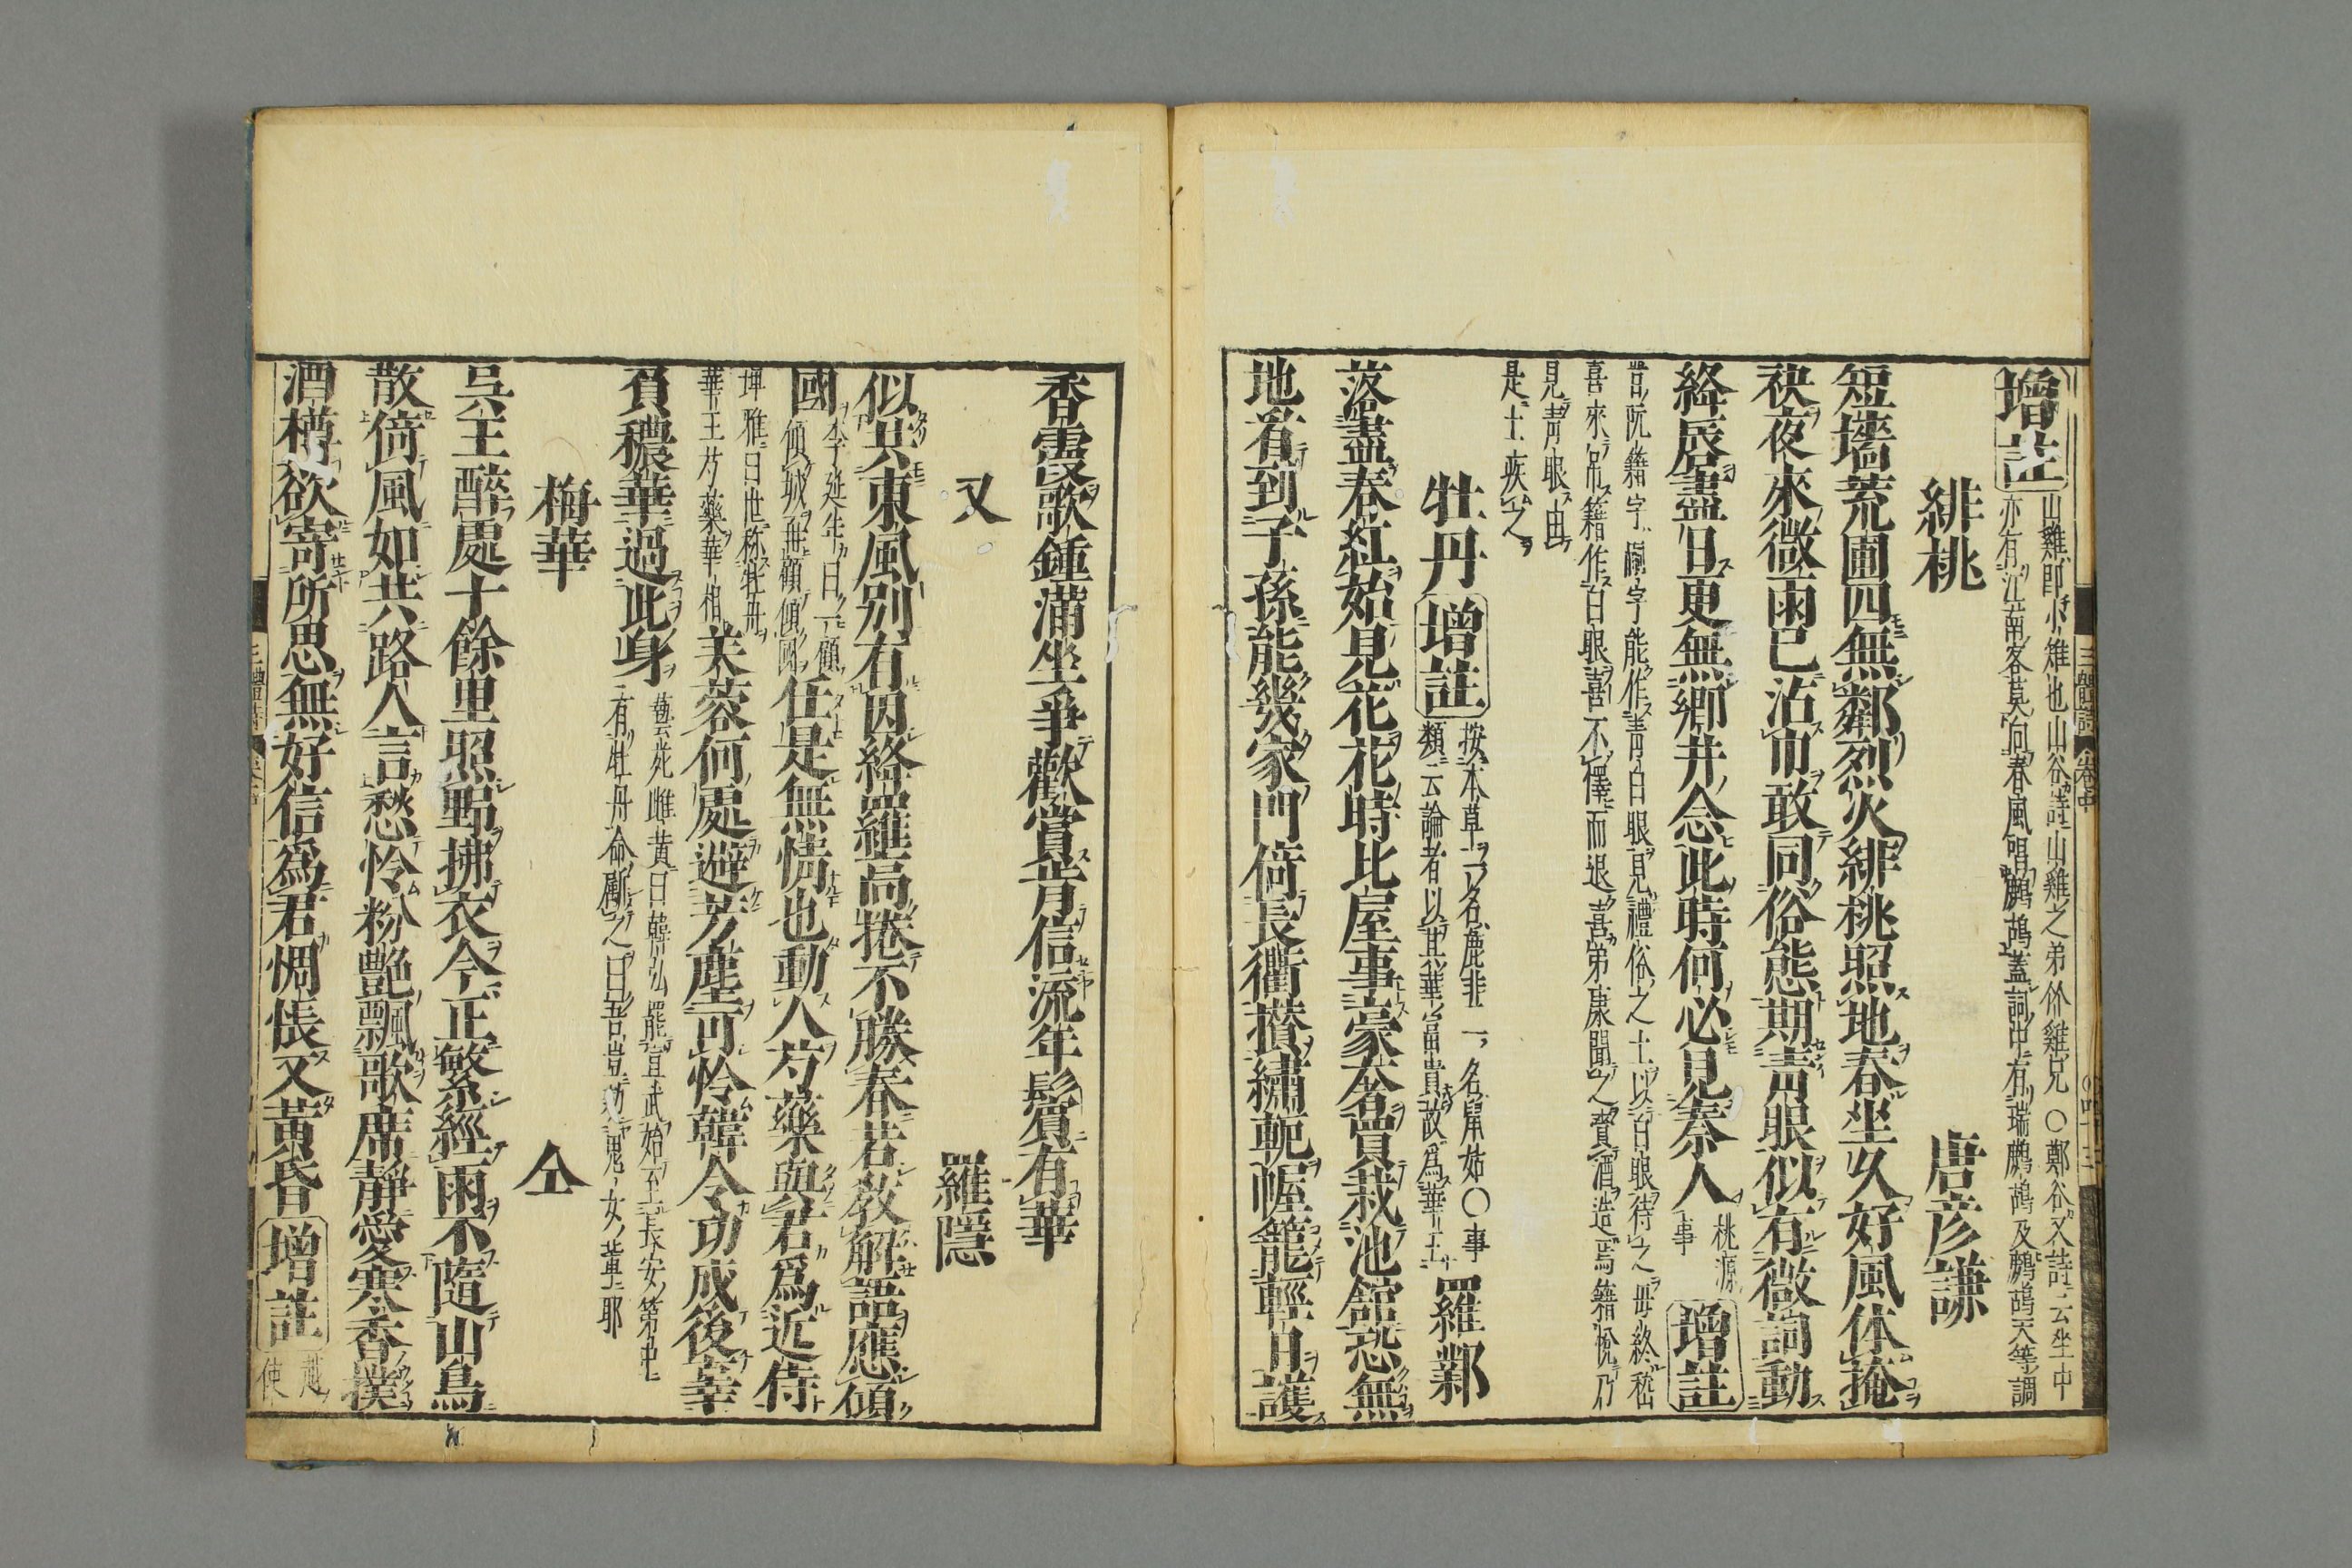 增註
山雞即小雉也山谷詩山雞之弟竹雞兄○鄭谷又詩云坐中
亦有江南客莫向春風唱鷓鴣蓋詞中有瑞鷓鴣及鷓鴣天等調
緋桃 唐彥謙
短墻荒圃四無鄰烈火緋桃照地春坐久好風休掩
袂夜來微雨已沾巾敢同俗態期青眼似有微詞動
絳唇盡日更無鄉井念此時何必見秦人
桃源
事
增註
晉阮籍字嗣宗能作青白眼見禮俗之士以白眼待之毋終嵇
喜來吊籍作白眼喜不懌而退喜弟康聞之賫酒造焉籍悅乃
見青眼由
是士疾之
牡丹 增註
按本草一名鹿韭一名鼠姑○事
類云論者以其華富貴故爲華王
羅鄴
落盡春紅始見花花時比屋事豪奢買栽池館恐無
地看到子孫能幾家門倚長衢攢繡軛幄籠輕日護
香霞歌鍾滿坐爭歡賞肯信流年鬢有華
又 羅隱
似共東風別有因絳羅高捲不勝春若教解語應傾
國
李延年曰一顧
傾城再顧傾國
任是無情也動人芍藥與君爲近侍
埤雅曰世称牡丹
華王芍藥華相
芙蓉何處避芳塵可怜韓令功成後辜
負穠華過此身
藝苑雌黄曰韓弘罷宣武始至長安第中
有牡丹命斸之曰吾豈効兒女輩耶
梅華 仝
吳王醉處十餘里照野拂衣今正繁經雨不隨山鳥
散倚風如共路人言愁怜粉艶飄歌席靜愛寒香撲
酒樽欲寄所思無好信爲君惆悵又黃昏
增註
越
使
三體詩 卷中